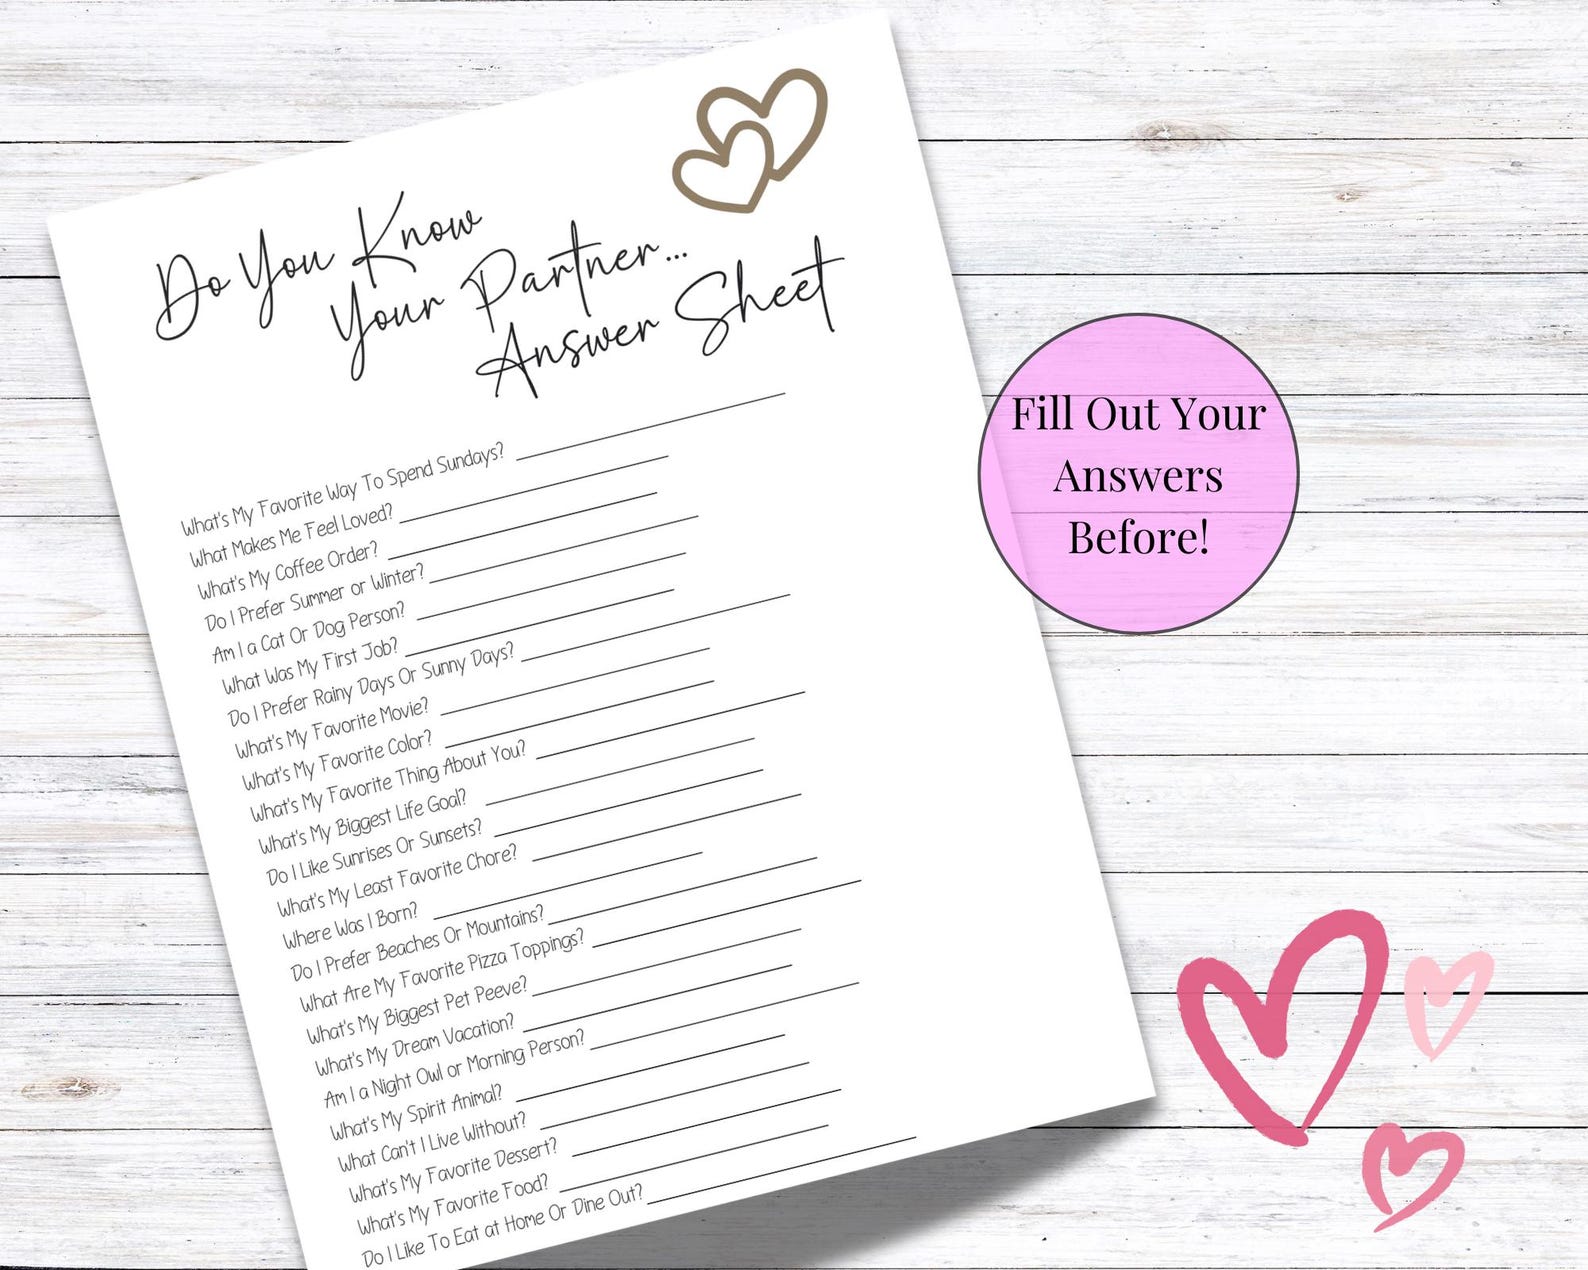 Do You Know
Your Partner...
Answer Sheet
What's My Favorite Way To Spend Sundays?
What Makes Me Feel Loved?
What's My Coffee Order?
Do I Prefer Summer or Winter?
Am I a Cat Or Dog Person?
What Was My First Job?
Do I Prefer Rainy Days Or Sunny Days?
What's My Favorite Movie?
What's My Favorite Color?
What's My Favorite Thing About You?
What's My Biggest Life Goal?
Do I Like Sunrises Or Sunsets?
What's My Least Favorite Chore?
Where Was I Born?
Do I Prefer Beaches Or Mountains?
What Are My Favorite Pizza Toppings?
What's My Biggest Pet Peeve?
What's My Dream Vacation?
Am I a Night Owl or Morning Person?
What's My Spirit Animal?
What Can't I Live Without?
What's My Favorite Dessert?
What's My Favorite Food?
Do I Like To Eat at Home Or Dine Out?
Fill Out Your
Answers
Before!